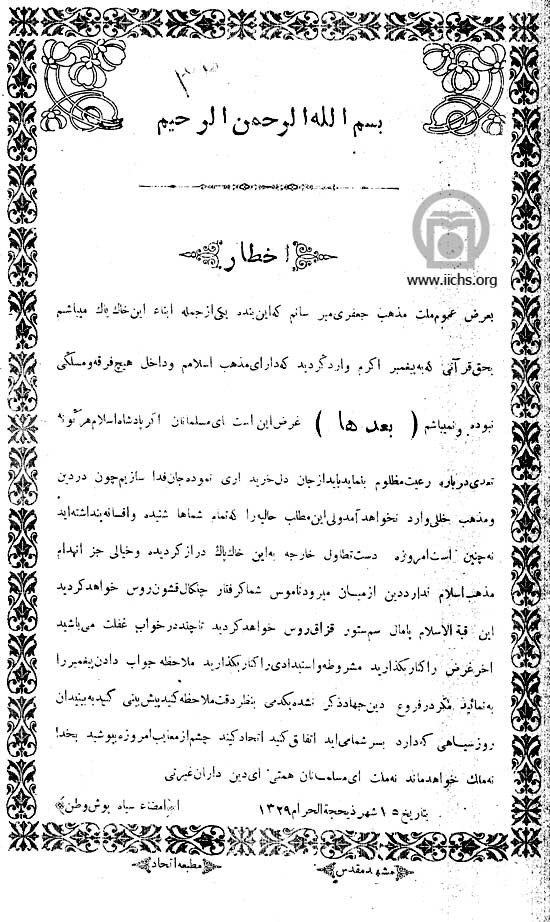 بسم الله الرحمن الرحیم
اخطار
www.iichs.org
بعرض عموم ملت مذهب جعفری میرسانم که این بنده یکی از جمله ابناء این خاک پاک میباشم
بحق قرآنی که به پیغمبر اکرم وارد گردید که دارای مذهب اسلامم و داخل هیچ فرقه و مسلکی
نبوده و نمیباشم ( بعدها ) غرض این است ای مسلمانان اگر پادشاه اسلام هر گونه
تعدی درباره رعیت مظلوم بنماید باید از جان دل خریداری نموده جان فدا سازیم چون در دین
و مذهب خللی وارد نخواهد آمد ولی این مطلب حالیه را که تمام شماها شنیده و افسانه پنداشته اید
نه چنین است امروزه دست تطاول خارجه به این خاک پاک دراز گردیده و خیالی جز انهدام
مذهب اسلام ندارد دین از میان میرود ناموس شما گرفتار چنگال قشون روس خواهد گردید
این قبة الاسلام پامال سم ستور قزاق روس خواهد گردید تا چند در خواب غفلت می باشید
آخر غرض را کنار بگذارید مشروطه و استبدادی را کنار بگذارید ملاحظه جواب دادن پیغمبر را
به نمائید مگر در فروع دین جهاد ذکر نشده یکدمی بنظر دقت ملاحظه کنید پیش بینی کنید به بینید آن
روز سیاهی که دارد بسر شما می اید اتفاق کنید اتحاد کیند چشم از معایب امروزه بپوشید بخدا
نه ملک خواهد ماند نه ملت ای مسلمانان همتی ای دین داران غیرتی
بتاریخ ۱۵ شهر ذیحجة الحرام ۱۳۲۹ امضاء سیاه پوش وطن
مشهد مقدس مطبعه اتحاد